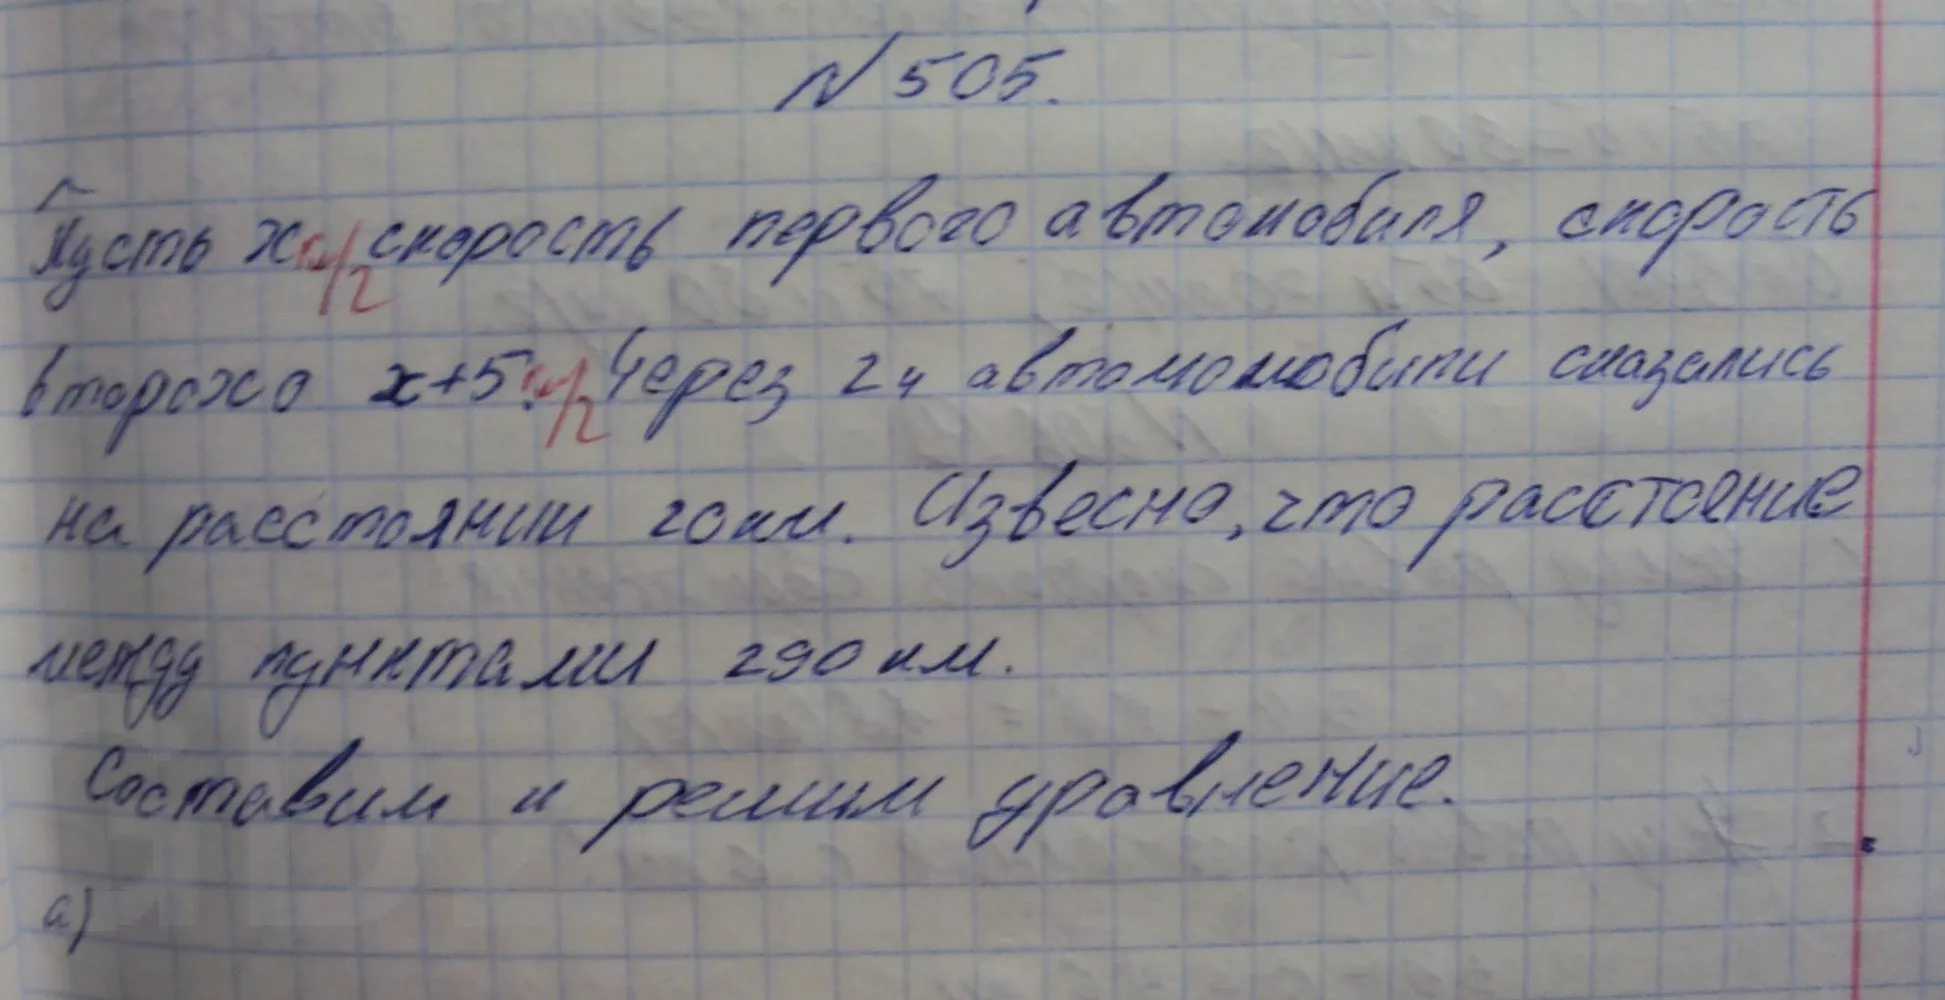 N 505.
Пусть x км/г скорость первого автомобиля, скорость
второго x+5 км/г. Через 2ч автомомобили оказались
на расстоянии 20км. Извесно, что расстоение
между пунктами 290 км.
Составим и решим уравнение.
а)